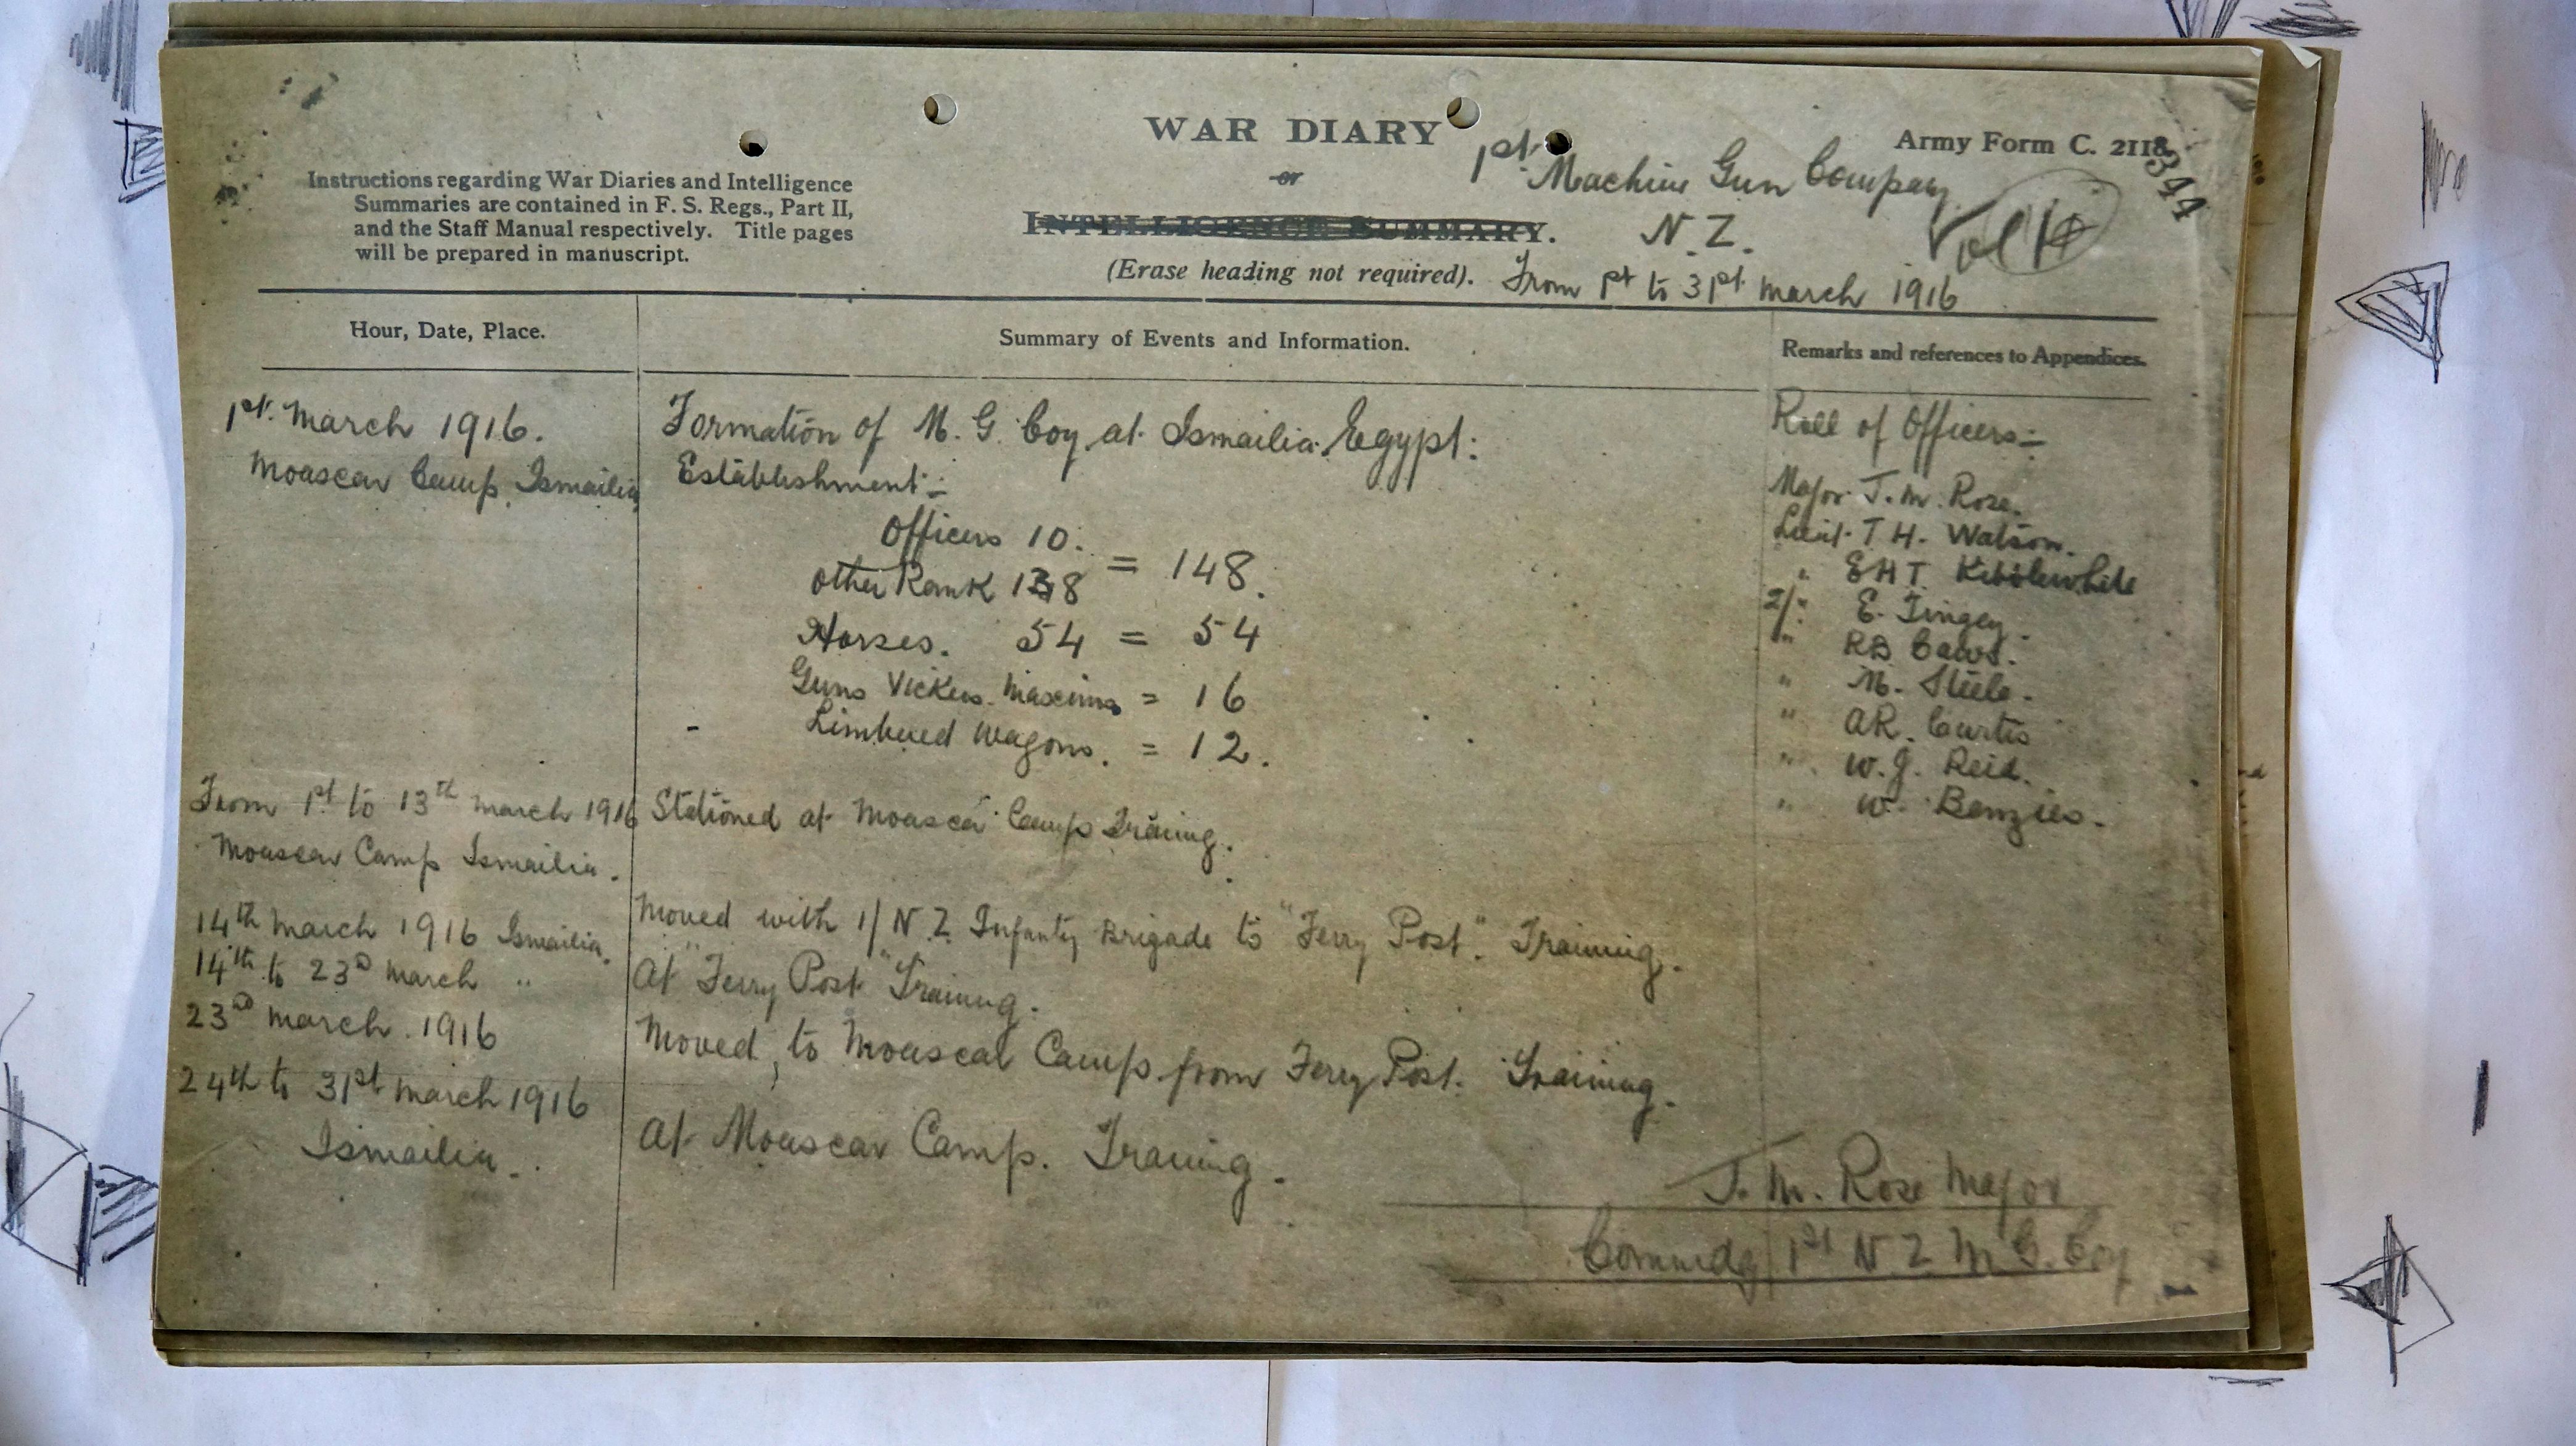 WAR DIARY
or
INTELLIGENCE SUMMARY.
(Erase heading not required).
Army Form C. 2118
344
Instructions regarding War Diaries and Intelligence
Summaries are contained in F. S. Regs., Part II,
and the Staff Manual respectively. Title pages
will be prepared in manuscript.
1st Machine Gun Company
N.Z.
Vol
From 1st to 31st March 1916
Hour, Date, Place.
Summary of Events and Information.
Remarks and references to Appendices.
1st March 1916.
Moascar Camp, Ismailia
Formation of M. G. Coy at Ismailia Egypt:
Establishment:-
Officers 10.
= 148.
Other Rank 138
Horses. 54 = 54
Guns Vickers Maxims = 16
Limbered Wagons. = 12.
Roll of Officers:-
Major J. M. Rose.
Lieut. T H. Watson.
" E H T Kibblewhite
2/" E. Tingey.
" R D Caws.
" M. Steele.
" AR. Curtis
" W. J. Reid.
" W. Benzies.
From 1st to 13th March 1916
Moascar Camp Ismailia.
Stationed at Moascar Camp Training.
14th March 1916 Ismailia.
Moved with 1/ N Z Infanty Brigade to "Ferry Post". Training.
14th to 23D March "
At "Ferry Post" Training.
23RD March. 1916
Moved, to Moascar Camp from Ferry Post. Training.
24th to 31st March 1916
Ismailia.
At Moascar Camp. Training.
J. M. Rose Major
Commdg 1st N Z M G. Coy